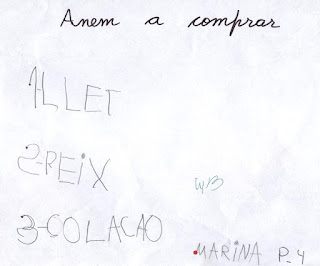 Anem a comprar
1-LLET
2-PEIX
3-COLACAO
MARINA P-4